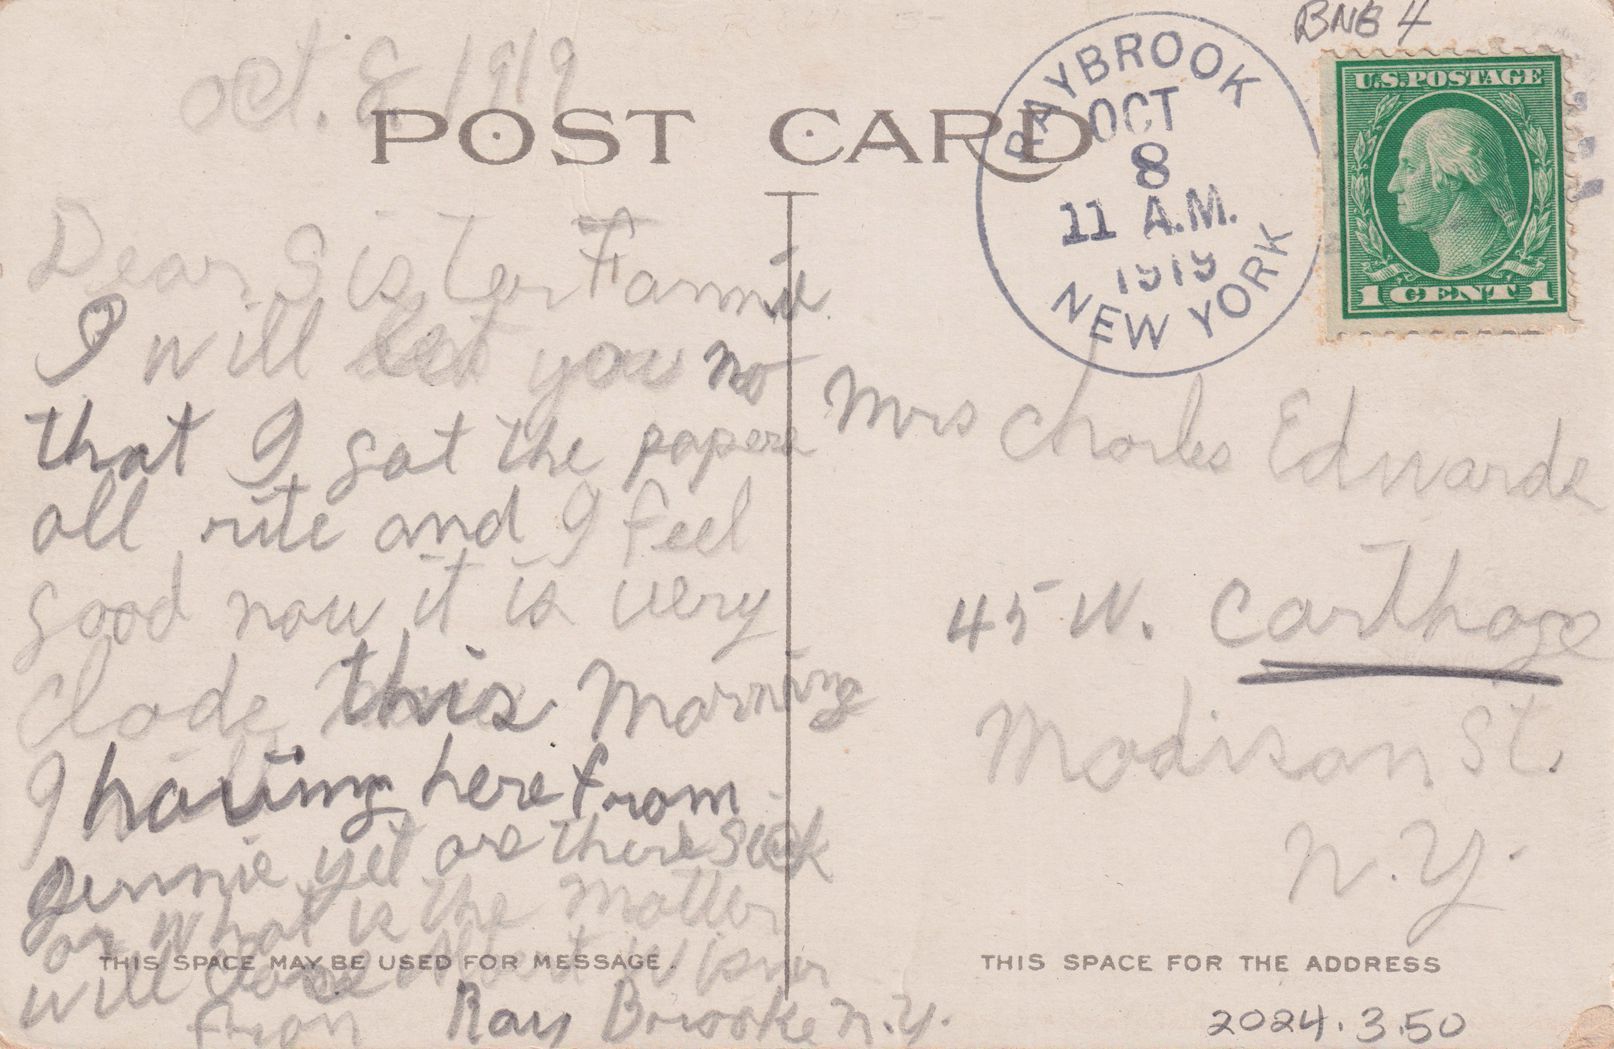 BNB 4
oct. 8 1919
POST CARD
RAYBROOK
OCT
8
11 A.M.
1919
NEW YORK
U.S. POSTAGE
1 CENT 1
Dear Sister Fannie
I will let you no
that I got the papers
all rite and I feel
good now it is very
Clode this morning
I having here from
Jennie yet are there sick
or What is the Matter
will Albert
from Ray Brooke N.Y.
THIS SPACE MAY BE USED FOR MESSAGE.
Mrs Charles Edwards
45 W. Carthage
Madison St.
N.Y.
THIS SPACE FOR THE ADDRESS
2024.3.50